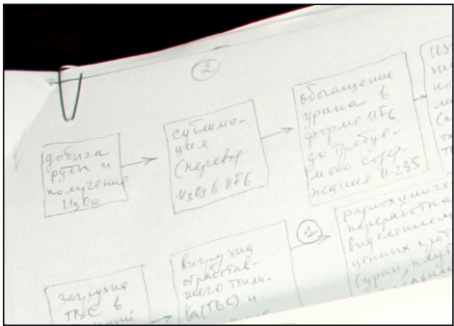 ②
добыча
руды и
получение
U3O8
сублима-
ция
(перевод
U3O8 в UF6
обогащение
урана в
форме UF6
до требуе-
мого содер-
жания U-235
①
загрузка
ТВС в
выгрузка
отработав-
шего топли-
ва (ТВС) и
радиохимиче
переработка
выделением
ценных
(уран, плут